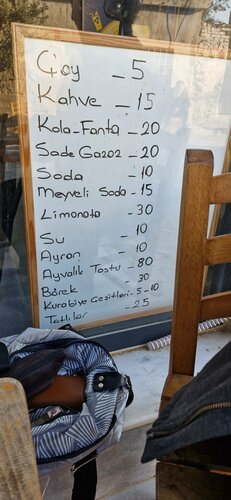 Çay - 5
Kahve - 15
Kola-Fanta - 20
Sade Gazoz - 20
Soda - 10
Meyveli Soda - 15
Limonata - 30
Su - 10
Ayran - 10
Ayvalık Tostu - 80
Börek - 30
Kurabiye Çeşitleri - 5-10
Tatlılar - 25